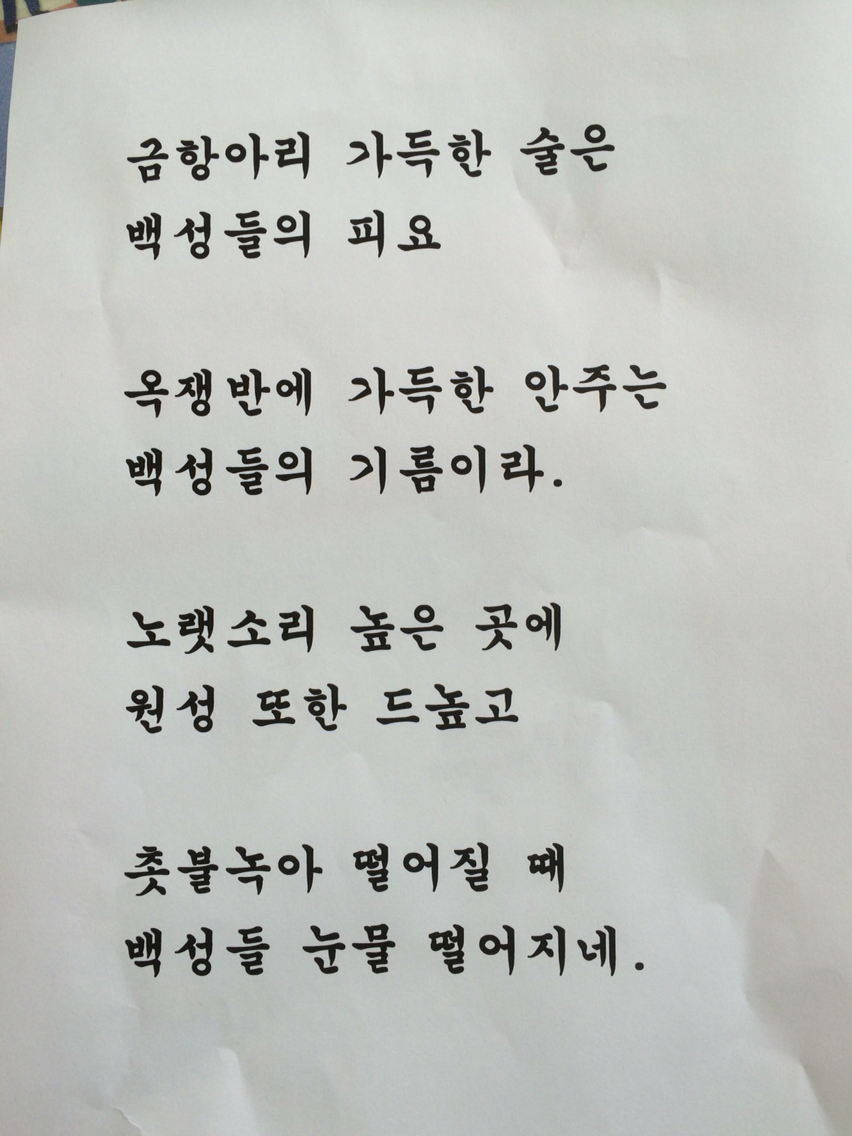 금항아리 가득한 술은
백성들의 피요
옥쟁반에 가득한 안주는
백성들의 기름이라.
노랫소리 높은 곳에
원성 또한 드높고
촛불녹아 떨어질 때
백성들 눈물 떨어지네.